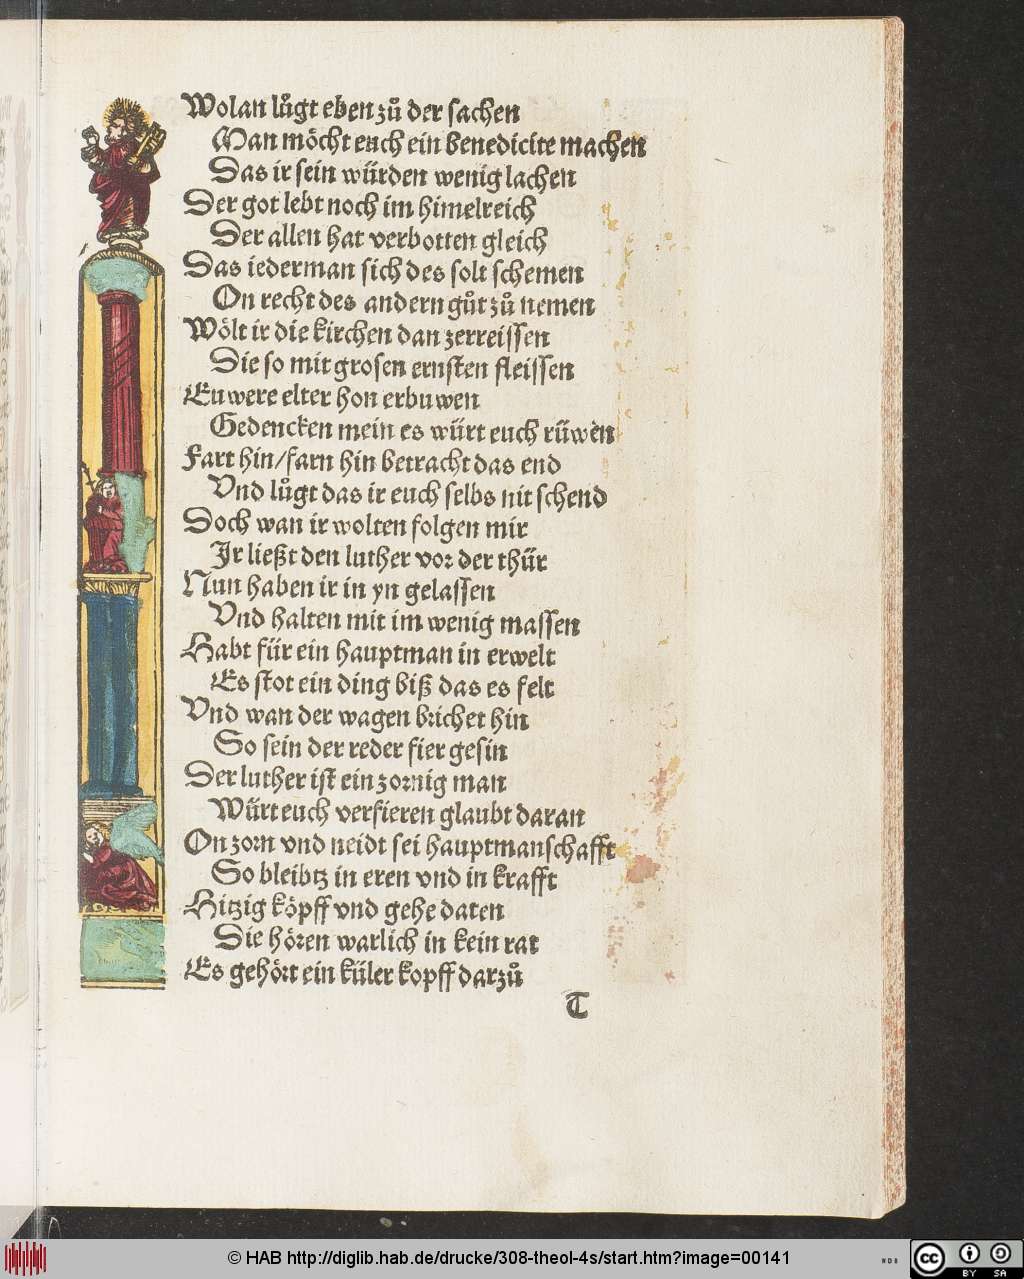 Wolan lůgt eben zů der sachen
Man möcht euch ein benedicite machen
Das ir sein würden wenig lachen
Der got lebt noch im himelreich
Der allen hat verbotten gleich
Das iederman sich des solt schemen
On recht des andern gůt zů nemen
Wölt ir die kirchen dan zerreissen
Die so mit grosen ernsten fleissen
Euwere elter hon erbuwen
Gedencken mein es würt euch rüwen
Fart hin/farn hin betracht das end
Vnd lůgt das ir euch selbs nit schend
Doch wan ir wolten folgen mir
Ir ließt den luther vor der thür
Nun haben ir in yn gelassen
Vnd halten mit im wenig massen
Habt für ein hauptman in erwelt
Es stot ein ding biß das es felt
Vnd wan der wagen brichet hin
So sein der reder fier gesin
Der luther ist ein zornig man
Würt euch verfieren glaubt daran
On zorn vnd neidt sei hauptmanschafft
So bleibtz in eren vnd in krafft
Hitzig köpff vnd gehe daten
Die hören warlich in kein rat
Es gehört ein küler kopff darzů
T
© HAB http://diglib.hab.de/drucke/308-theol-4s/start.htm?image=00141
WDB
cc BY SA